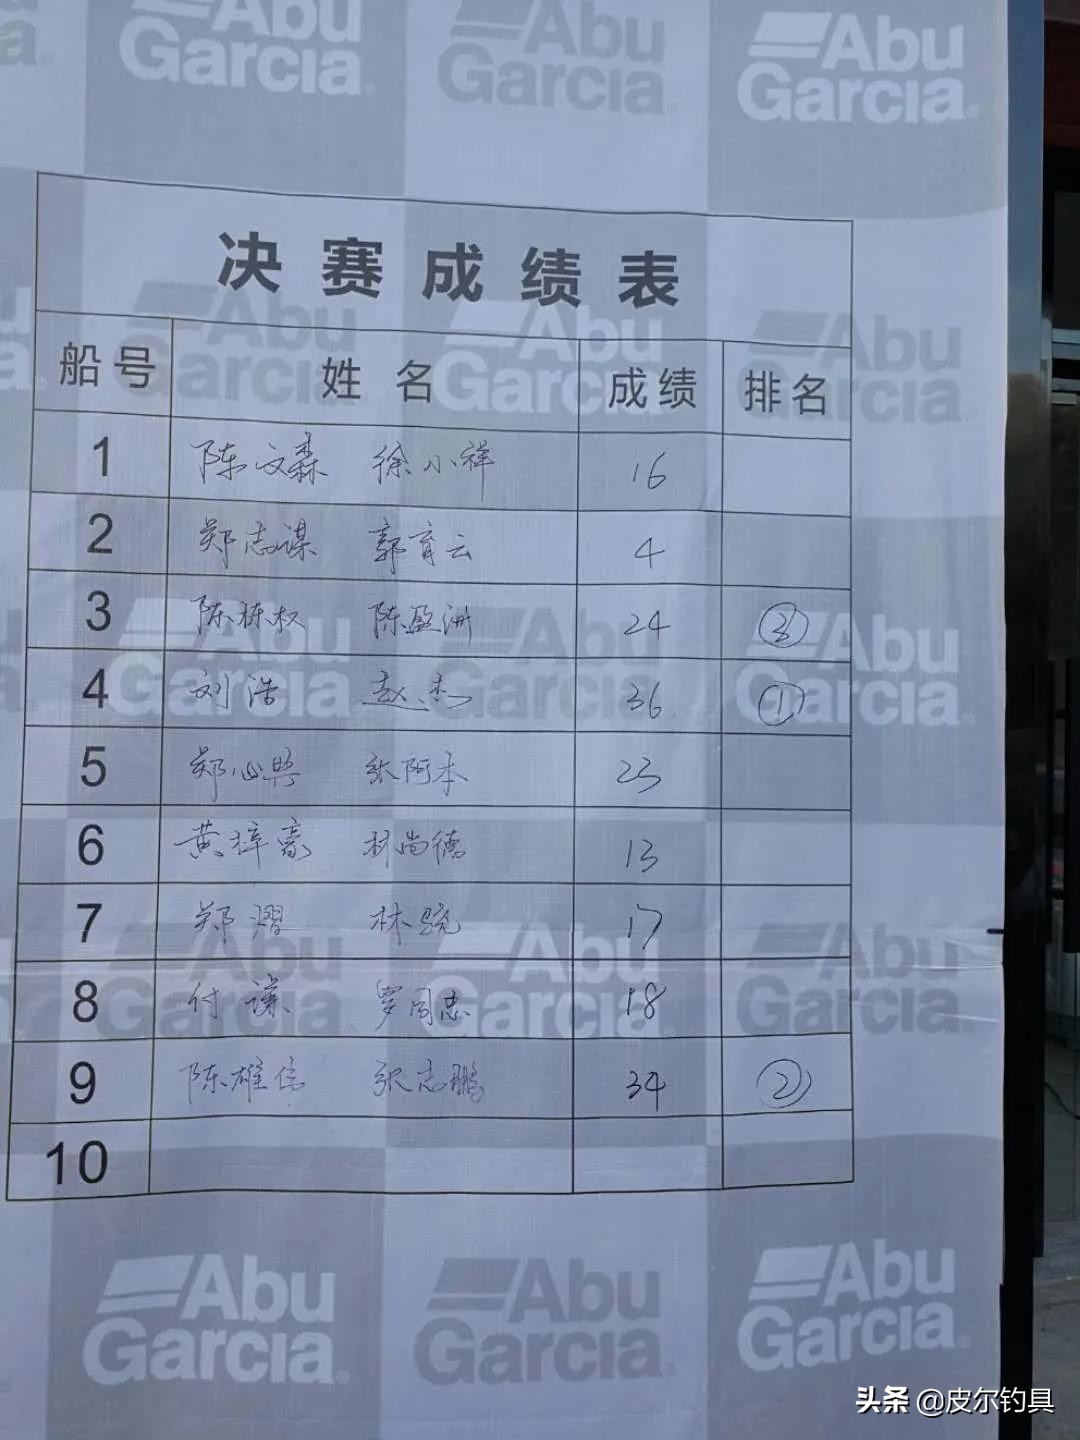 Abu Garcia. Abu Garcia. Abu Garcia.
决赛成绩表
船号 姓名 成绩 排名
1 陈文森 徐小祥 16
2 郑志谋 郭育云 4
3 陈栋权 陈盈洲 24 ③
4 刘浩 赵杰 36 ①
5 郑心典 张阿本 23
6 黄梓豪 林尚德 13
7 郑熠 林骁 17
8 付谋 罗同忠 18
9 陈雄信 张志鹏 34 ②
10
Abu Garcia. Abu Garcia. Abu Garcia.
头条 @皮尔钓具